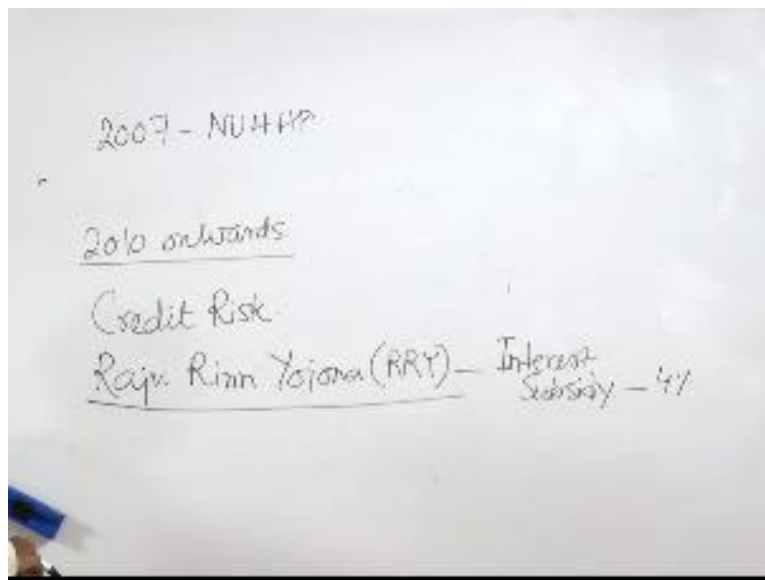 2007 - NUHHP
2010 onwards
Credit Risk
Rajiv Rinn Yojona (RRY) - Interest Subsidy - 4%